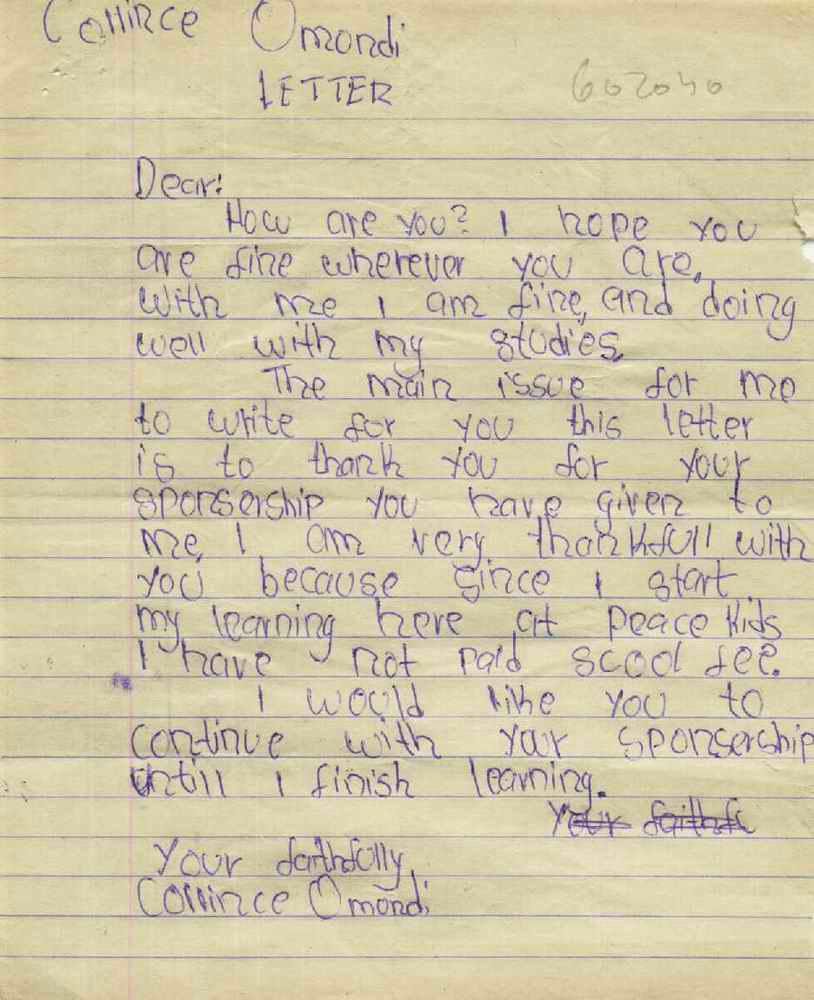 Collince Omondi
LETTER
602040
Dear:
How are you? I hope you
are fine wherever you are,
with me I am fine, and doing
well with my studies,
The main issue for me
to write for you this letter
is to thank you for your
sponsership you have given to
me, I am very thankfull with
you because since I start
my learning here at peace kids
I have not paid scool fee.
I would like you to
continue with your sponsership
untill I finish learning.
Your faithfu
Your faithfully,
Collince Omondi